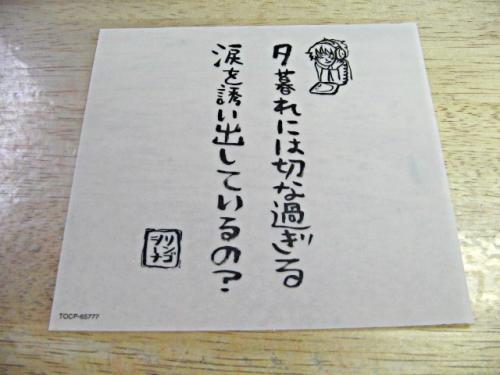 夕暮れには切な過ぎる
涙を誘い出しているの?
リンゴ
ヲンナ
TOCP-65777